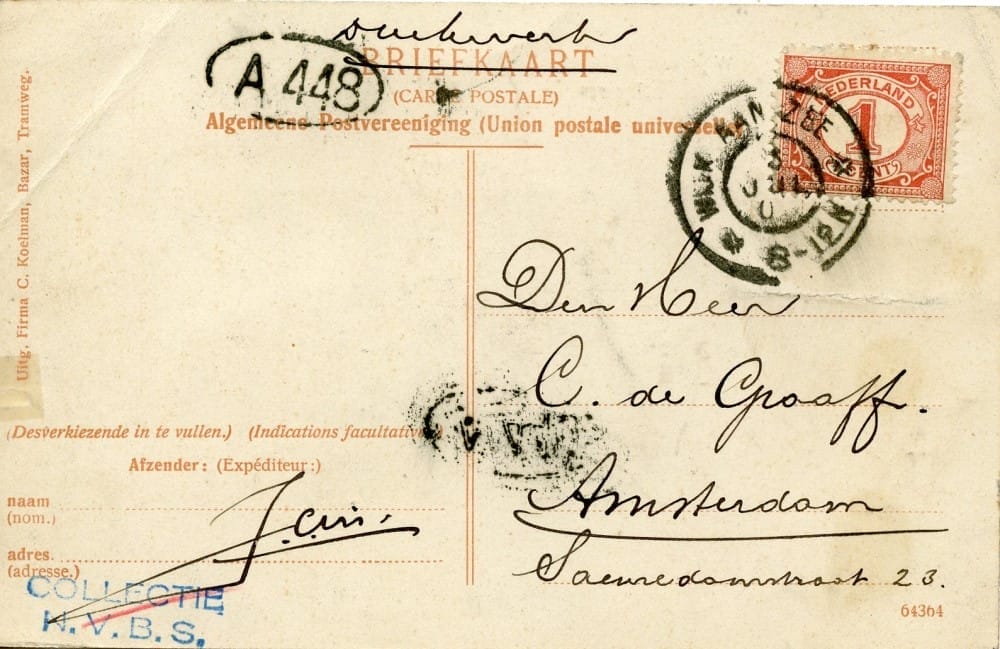 Drukwerk
BRIEFKAART
A 448
(CARTE POSTALE)
Algemeene Postvereeniging (Union postale universelle)
NEDERLAND
1
CENT
WIJK AAN ZEE
8-12N
Uitg. Firma C. Koelman, Bazar, Tramweg.
Den Heer
C. de Graaff.
Amsterdam
Saenredamstraat 23.
(Desverkiezende in te vullen.) (Indications facultatives)
Afzender: (Expéditeur:)
naam
(nom.)
adres.
(adresse.)
COLLECTIE
N.V.B.S.
64364